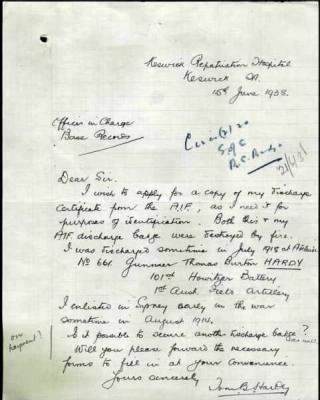 Keswick Repatriation Hospital
Keswick SA.
15th June 1938.
Officer in Charge
Base Records
Dear Sir.
I wish to apply for a copy of my discharge
certificate from the A.I.F., as I need it for
purposes of identification. Both this & my
A.I.F. discharge badge were destroyed by fire.
I was discharged sometime in July 1918 at Adelaide
No 661 Gunner Thomas Burton HARDY
101st Howitzer Battery
1st Aust. Field Artillery
I enlisted in Sydney early in the war
sometime in August 1914.
Is it possible to secure another discharge badge ?
on payment?
Will you please forward the necessary
forms to fill in at your convenience.
Yours sincerely
Tom B. Hardy